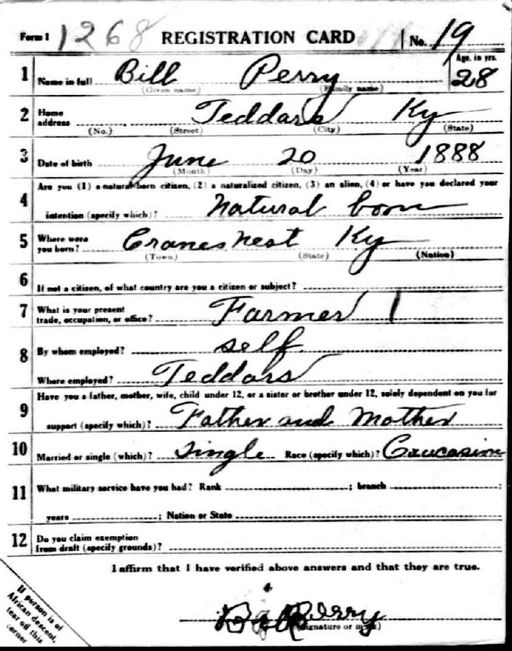 Form 1 1268 REGISTRATION CARD No. 19
1 Name in full Bill Perry Age, in yrs. 28
(Given name) (Family name)
2 Home address Teddars Ky
(No.) (Street) (City) (State)
3 Date of birth June 20 1888
(Month) (Day) (Year)
4 Are you (1) a natural-born citizen, (2) a naturalized citizen, (3) an alien, (4) or have you declared your
intention (specify which)? natural born
5 Where were you born? Cranes nest Ky
(Town) (State) (Nation)
6 If not a citizen, of what country are you a citizen or subject?
7 What is your present trade, occupation, or office? Farmer 1
8 By whom employed? self.
Where employed? Teddars
9 Have you a father, mother, wife, child under 12, or a sister or brother under 12, solely dependent on you for
support (specify which)? Father and Mother
10 Married or single (which)? Single Race (specify which)? Caucasion
11 What military service have you had? Rank ; branch ;
years ; Nation or State
12 Do you claim exemption from draft (specify grounds)?
I affirm that I have verified above answers and that they are true.
Perry
(Signature or mark)
If person is of
African descent,
tear off this
corner